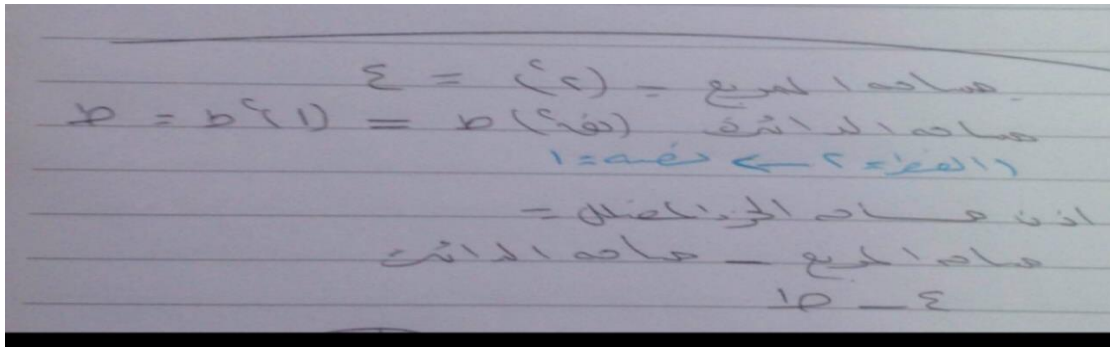 مساحه المربع = (٢)٢ = ٤
مساحه الدائرة (نق٢) ط = (١)٢ ط = ط
(القطر = ٢ ← نصفه = ١
اذن مساحه الجزء المضلل =
مساحه المربع – مساحه الدائرة
٤ – ط